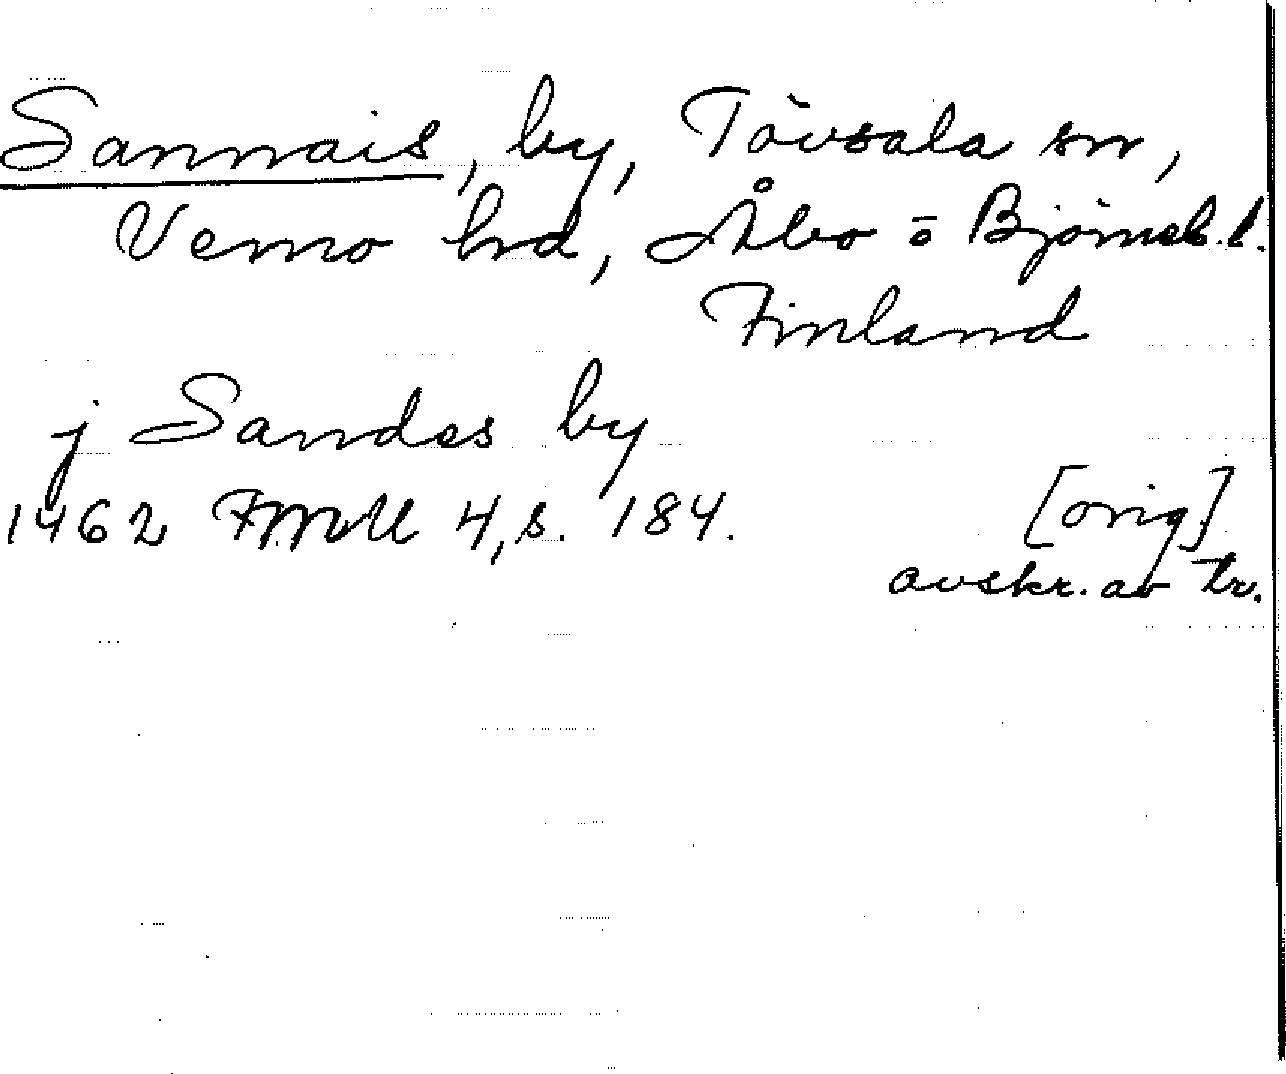 Sannais, by, Tövsala sn,
Vemo hd, Åbo o Björneb. l.
Finland
j Sandes by
1462 FMU 4, s. 184. [orig]
avskr. av tr.